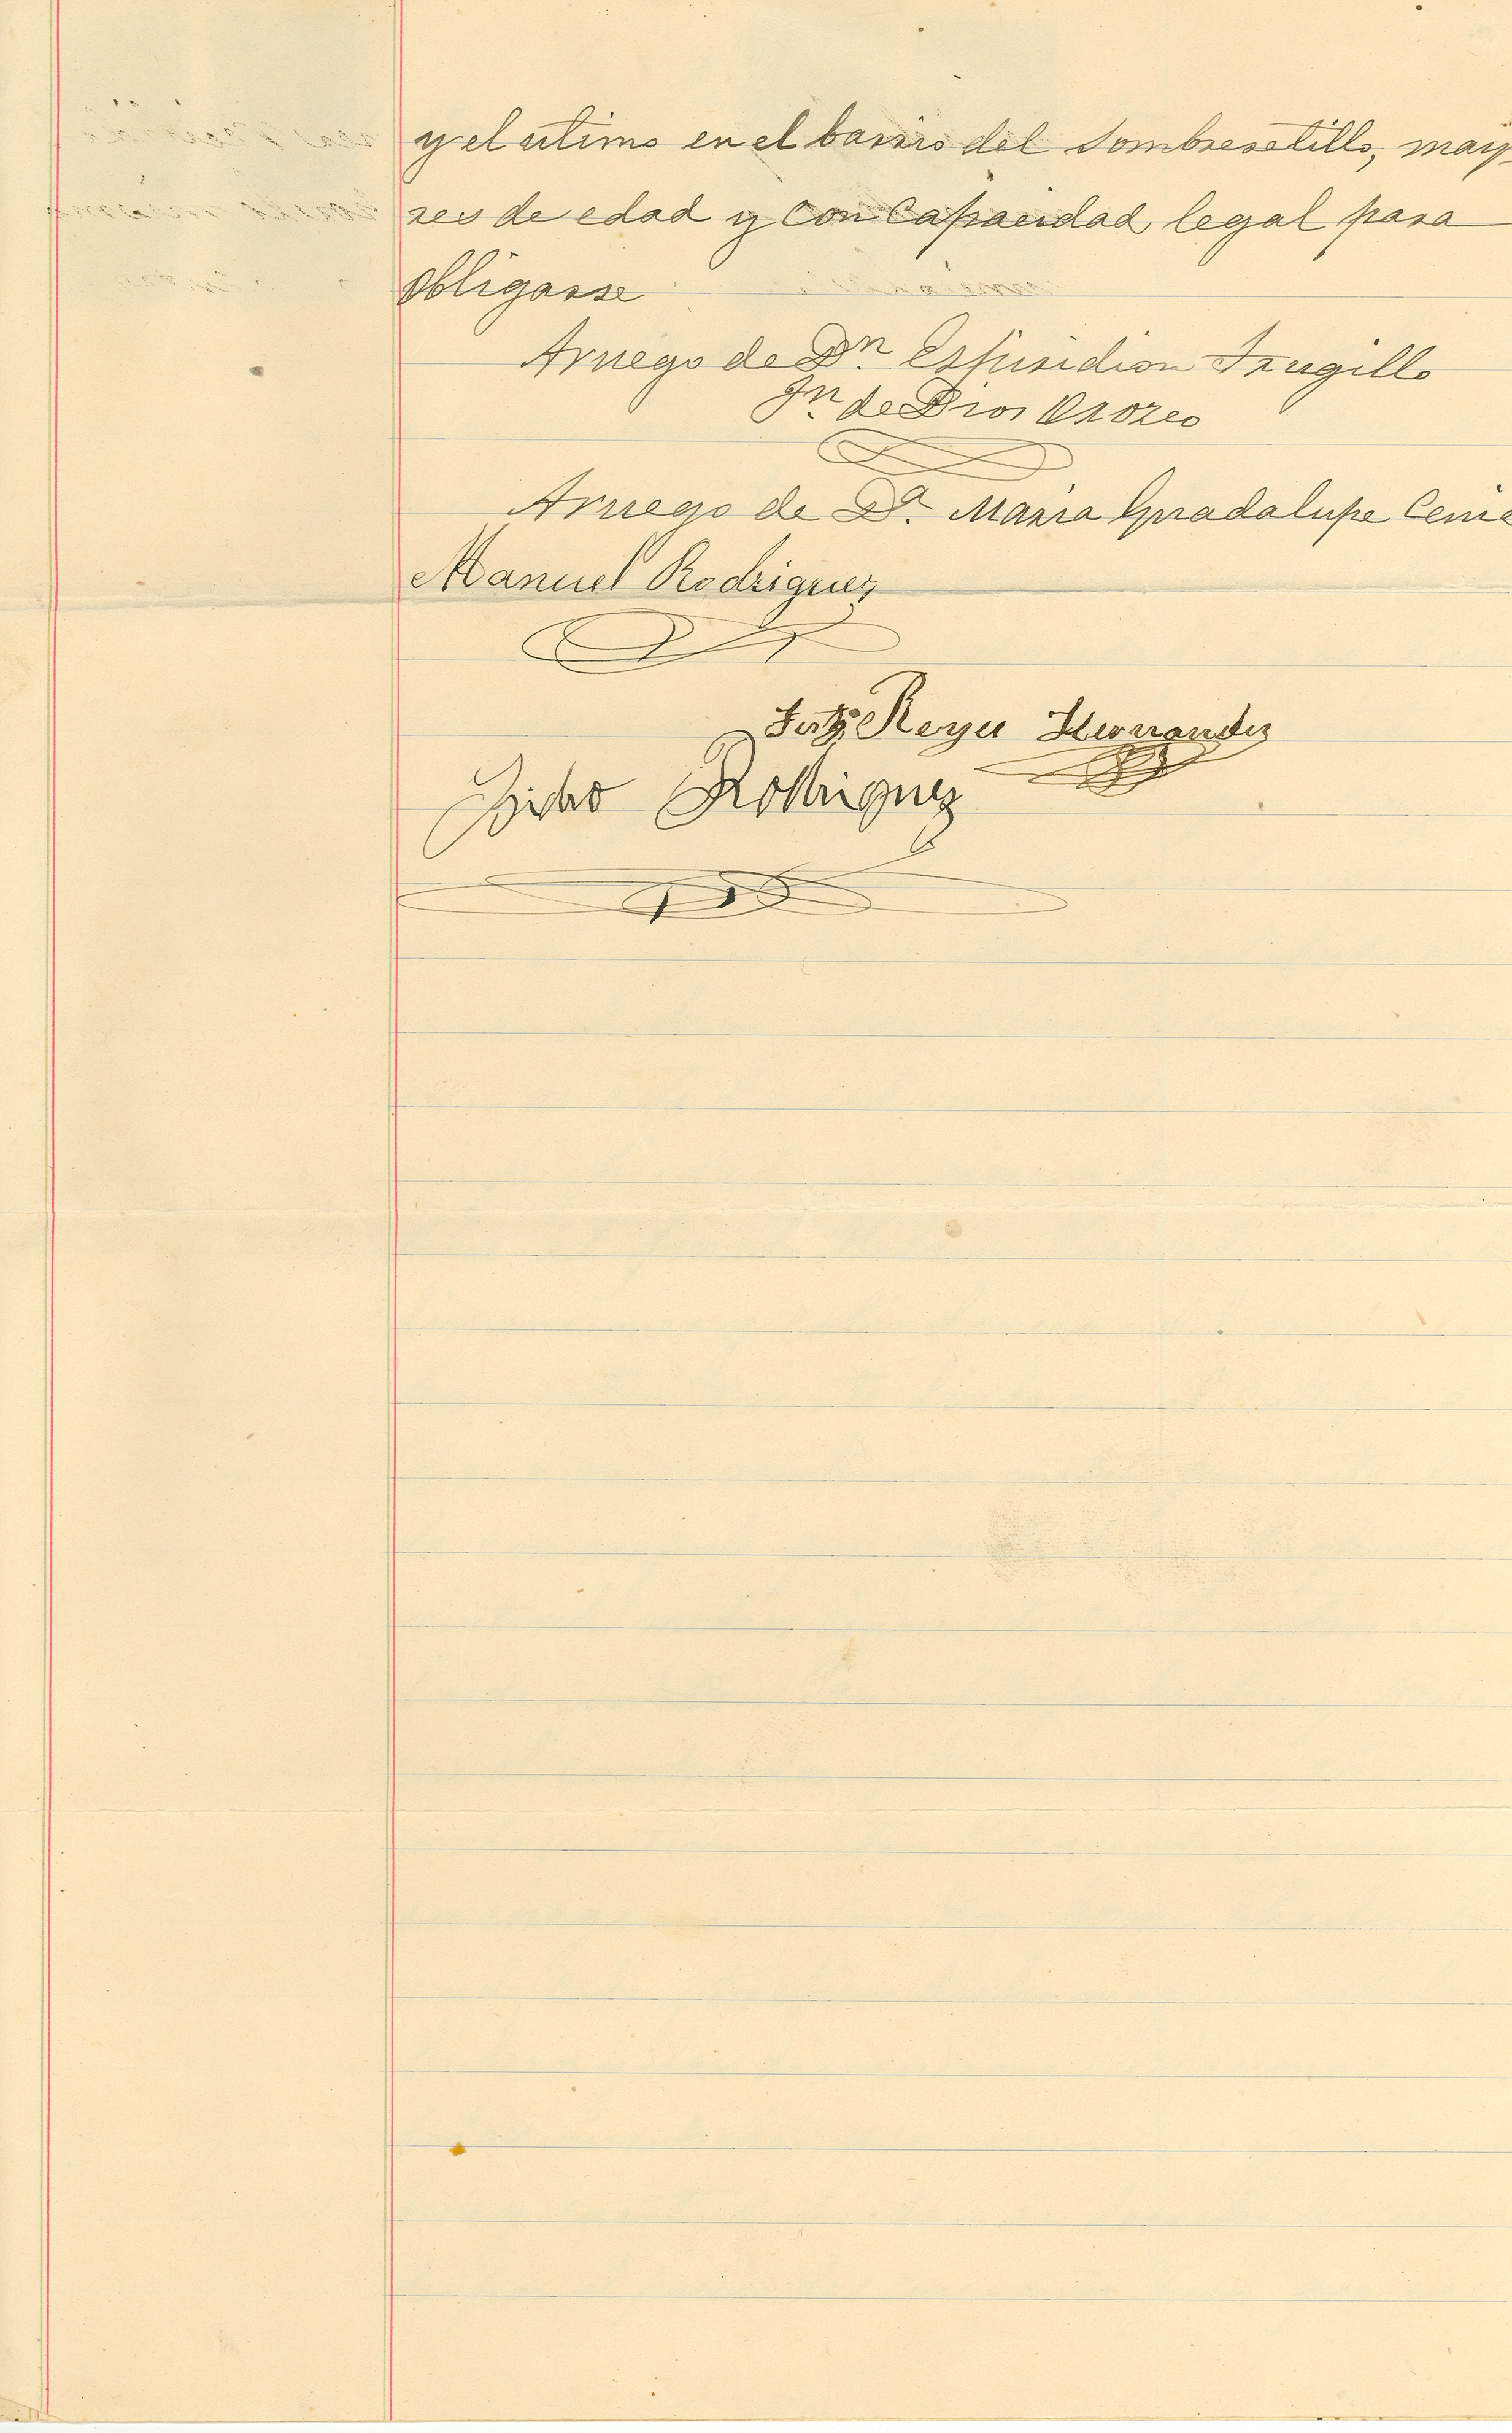 y el ultimo en el barrio del Sombreretillo, mayo
res de edad y con Capacidad legal para
obligarse
Arruego de Dn. Espiridion Trugillo
Jn de Dios Orozco
Arruego de Da. Maria Guadalupe
Manuel Rodriguez
Reyes Hernandez
Rodriguez